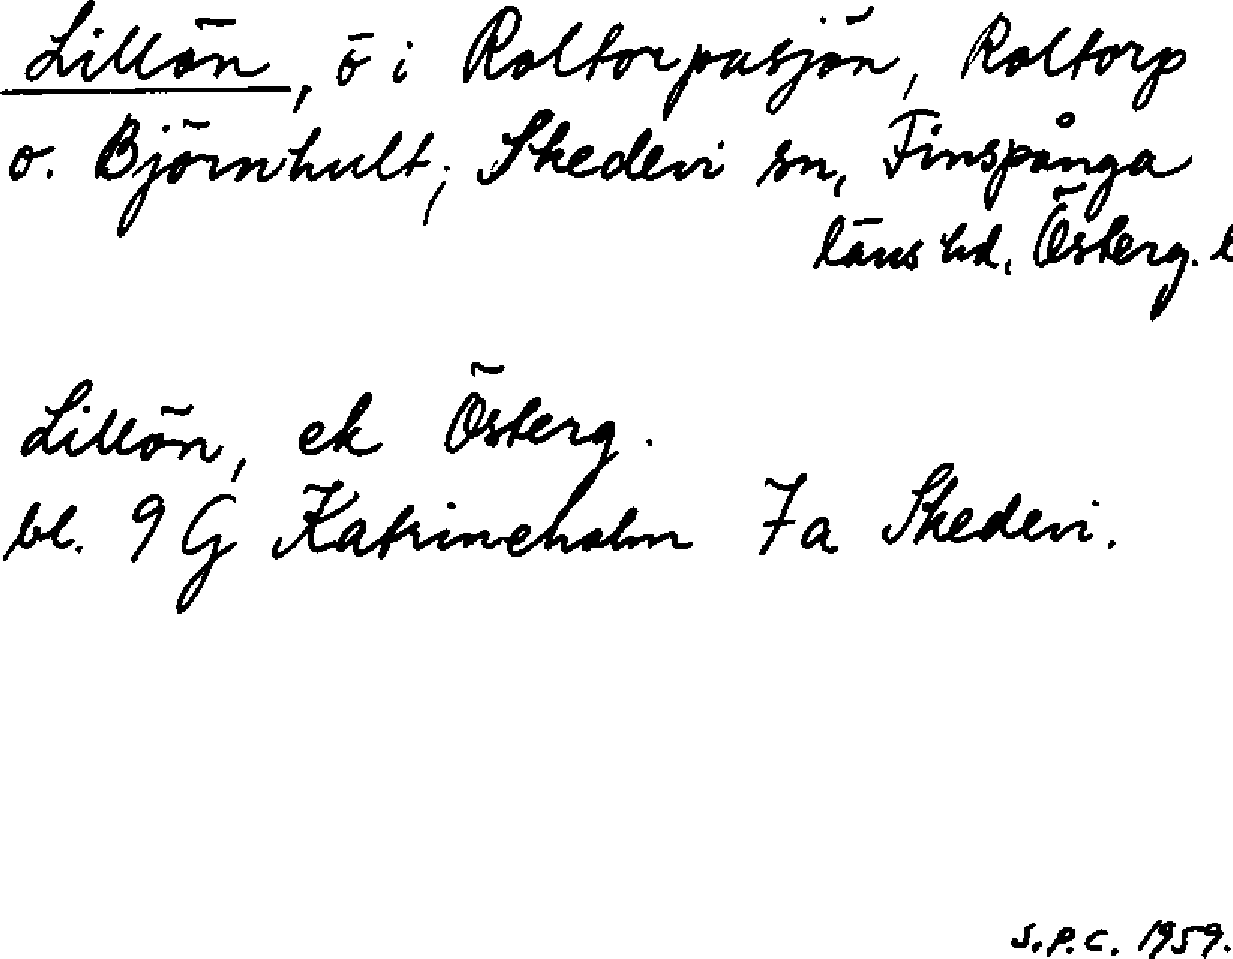 Lillön, ö i Roltorpasjön, Roltorp
o. Björnhult, Skedevi sn, Finspånga
läns hd, Österg. l
Lillön, ek Österg.
bl. 9 G Katrineholm 7a Skedevi.
S.P.C. 1959.